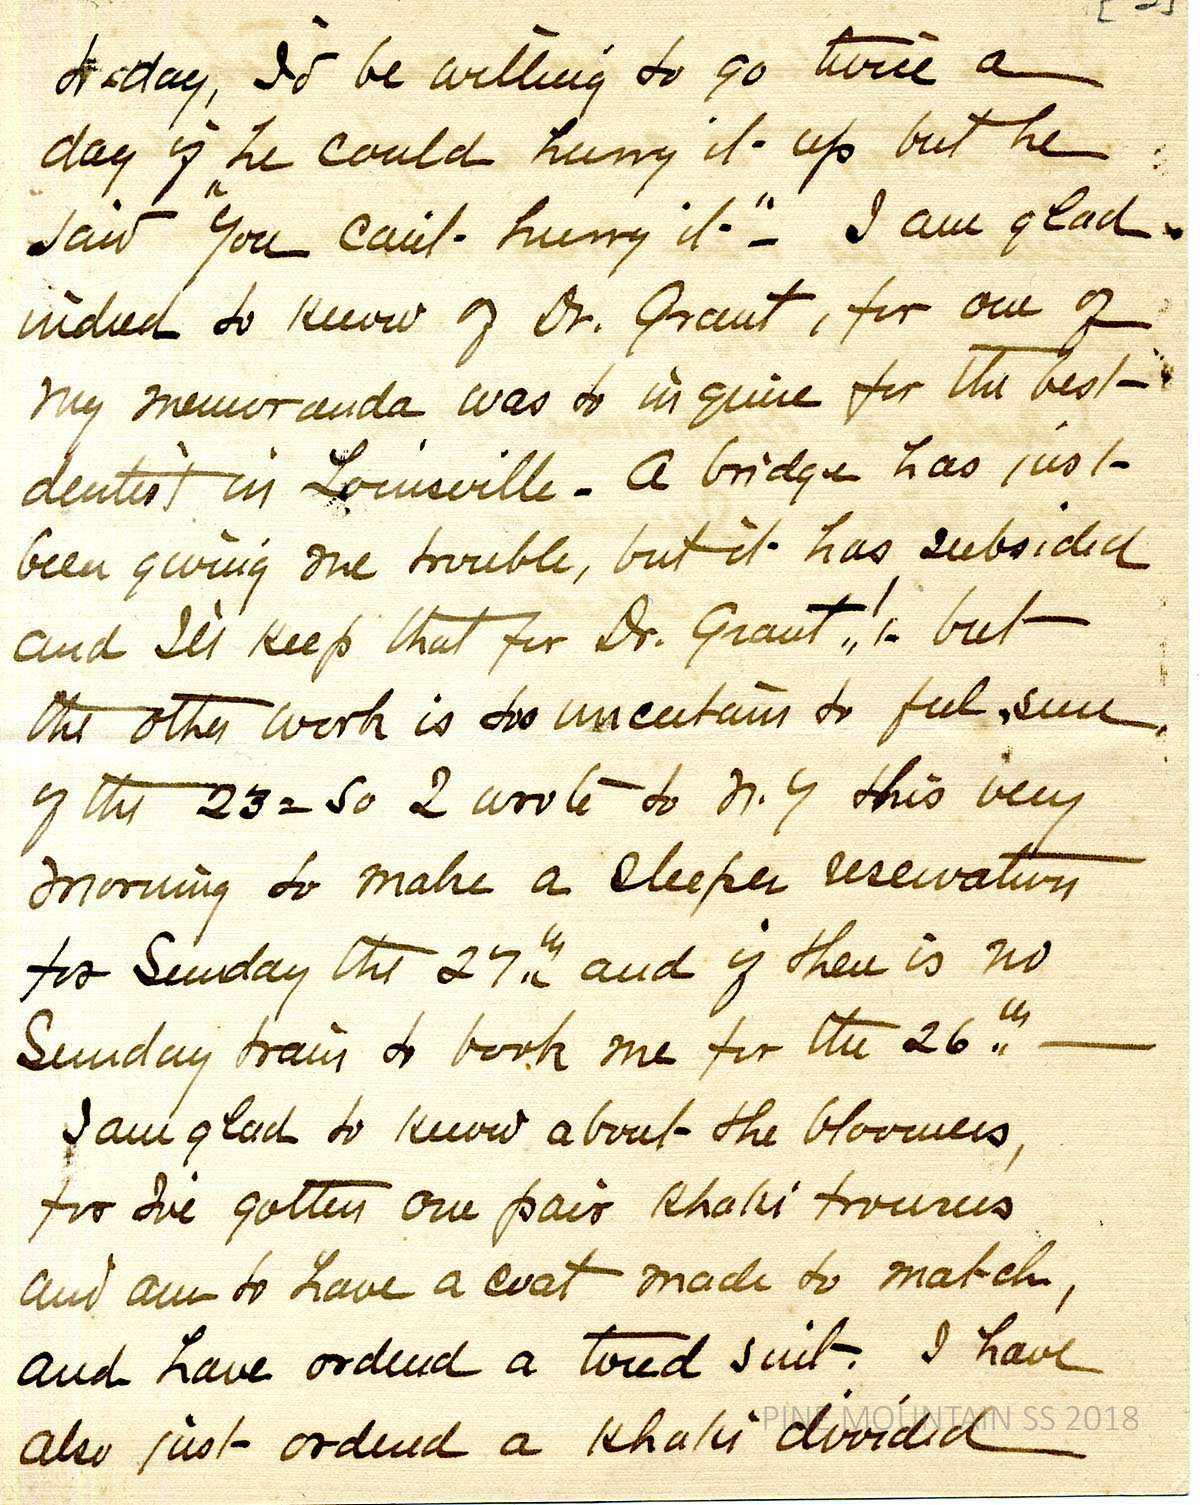 to-day, I'd be willing to go twice a
day if he could hurry it up but he
said "You can't hurry it" - I am glad
indeed to know of Dr. Grant, for one of
my memoranda was to inquire for the best
dentist in Louisville - A bridge has just
been giving me trouble, but it has subsided
and I'll keep that for Dr. Grant! - but
the other work is too uncertain to feel sure
of the 23 = So I wrote to N.Y this very
morning to make a sleeper reservation
for Sunday the 27th and if there is no
Sunday train to book me for the 26th —
I am glad to know about the bloomers,
for I've gotten one pair khaki trousers
and am to have a coat made to match,
and have ordered a tweed suit. I have
also just ordered a khaki divided
PINE MOUNTAIN SS 2018